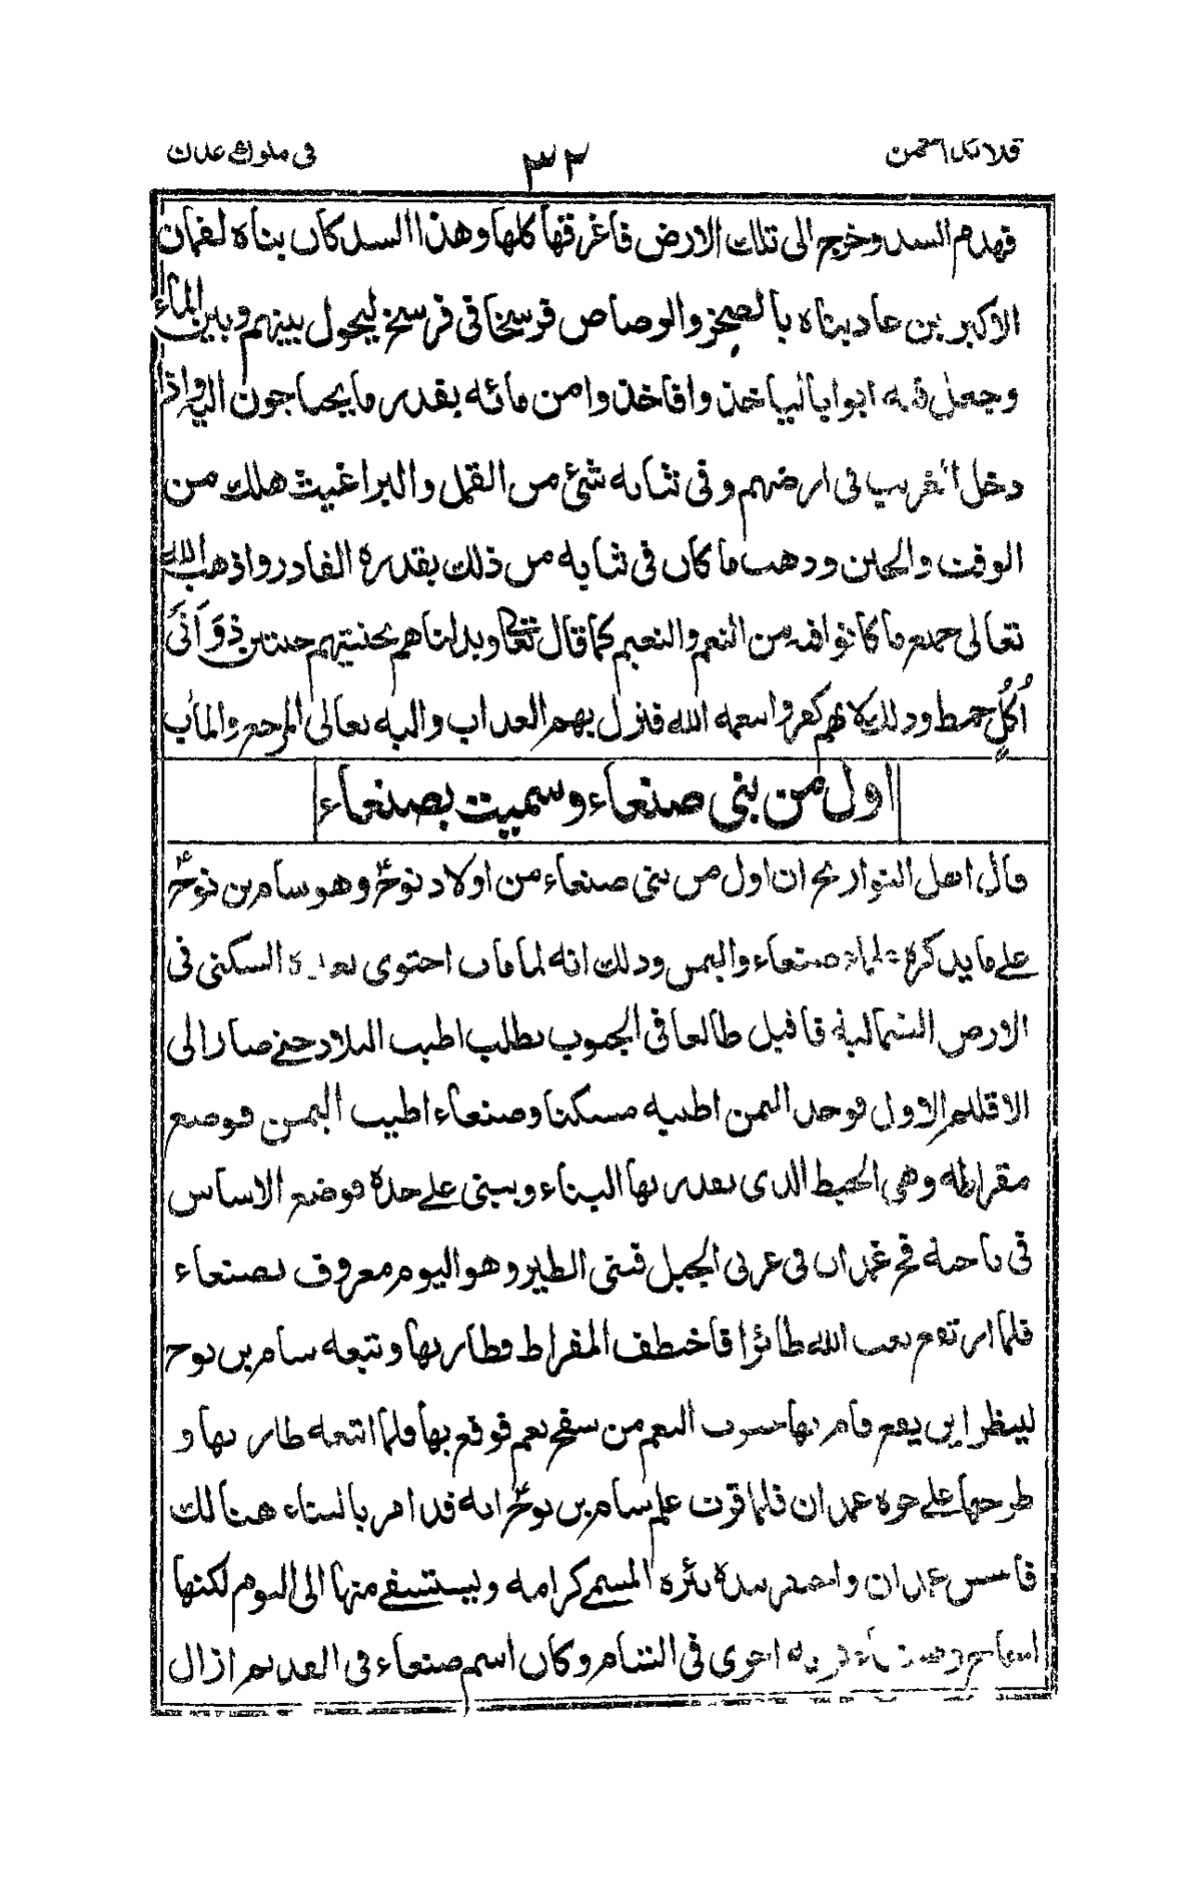 في ملوك عدن ٣٢ قلائد الجمن
فهدم السد وخرج الى تلك الارض فاغرقها كلها وهذا السد كان بناه لقمان
الاكبر بن عاد بناه بالصخر والرصاص فرسخا في فرسخ ليحول بينهم وبين الماء
وجعل فيه ابوابا لياخذوا من مائه بقدر ما يحتاجون اليه واذا
دخل الغريب في ارضهم وفي ثيابه شئ من القمل والبراغيث هلك من
الوقت والحين وذهب ما كان في ثيابه من ذلك بقدرة القادر واذهب الله
تعالى جميع ما كانوا فيه من النعم والنعيم كما قال تعالى وبدلناهم بجنتيهم جنتين ذَوَاتَىْ
اُكُلٍ خمط وذلك لانهم كفروا نعمة الله فنزل بهم العذاب واليه تعالى المرجع والمآب
اول من بنى صنعاء وسميت بصنعاء
قال اهل التواريخ ان اول من بنى صنعاء من اولاد نوحؑ وهو سام بن نوحؑ
على ما يذكره علماء صنعاء واليمن وذلك انه لما مات احتوى بعده السكنى في
الارض الشمالية فاقبل طالعا في الجنوب يطلب اطيب البلاد حتى صار الى
الاقليم الاول فوجد اليمن اطيبه مسكنا وصنعاء اطيب اليمن فوضع
مقراطه وهي الخيط الذي يقدر بها البناء ويبنى على حده فوضع الاساس
في ناحية فج غمدان في غربي الجبل فبنى الطير وهو اليوم معروف بصنعاء
فلما ارتفع بعث الله طائرا فاختطف المقراط فطار بها وتتبعه سام بن نوح
لينظر اين يقع فام بها جنوب النعم من سفح نعم فوقع بها فلما اتبعه طار بها و
طرحها على حره غمدان فلما قرت علم سام بن نوحؑ انه قد امر بالبناء هنالك
فاسس غمدان واحتفر بيده بئره المسمى كرامه ويستسقى منها الى اليوم لكنها
اجاج وصنعاء قريه اخرى في الشام وكان اسم صنعاء في القديم ازال